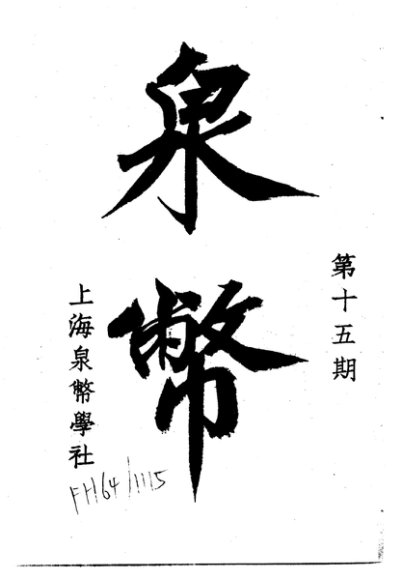 泉幣
第十五期
上海泉幣學社
FH64/1115